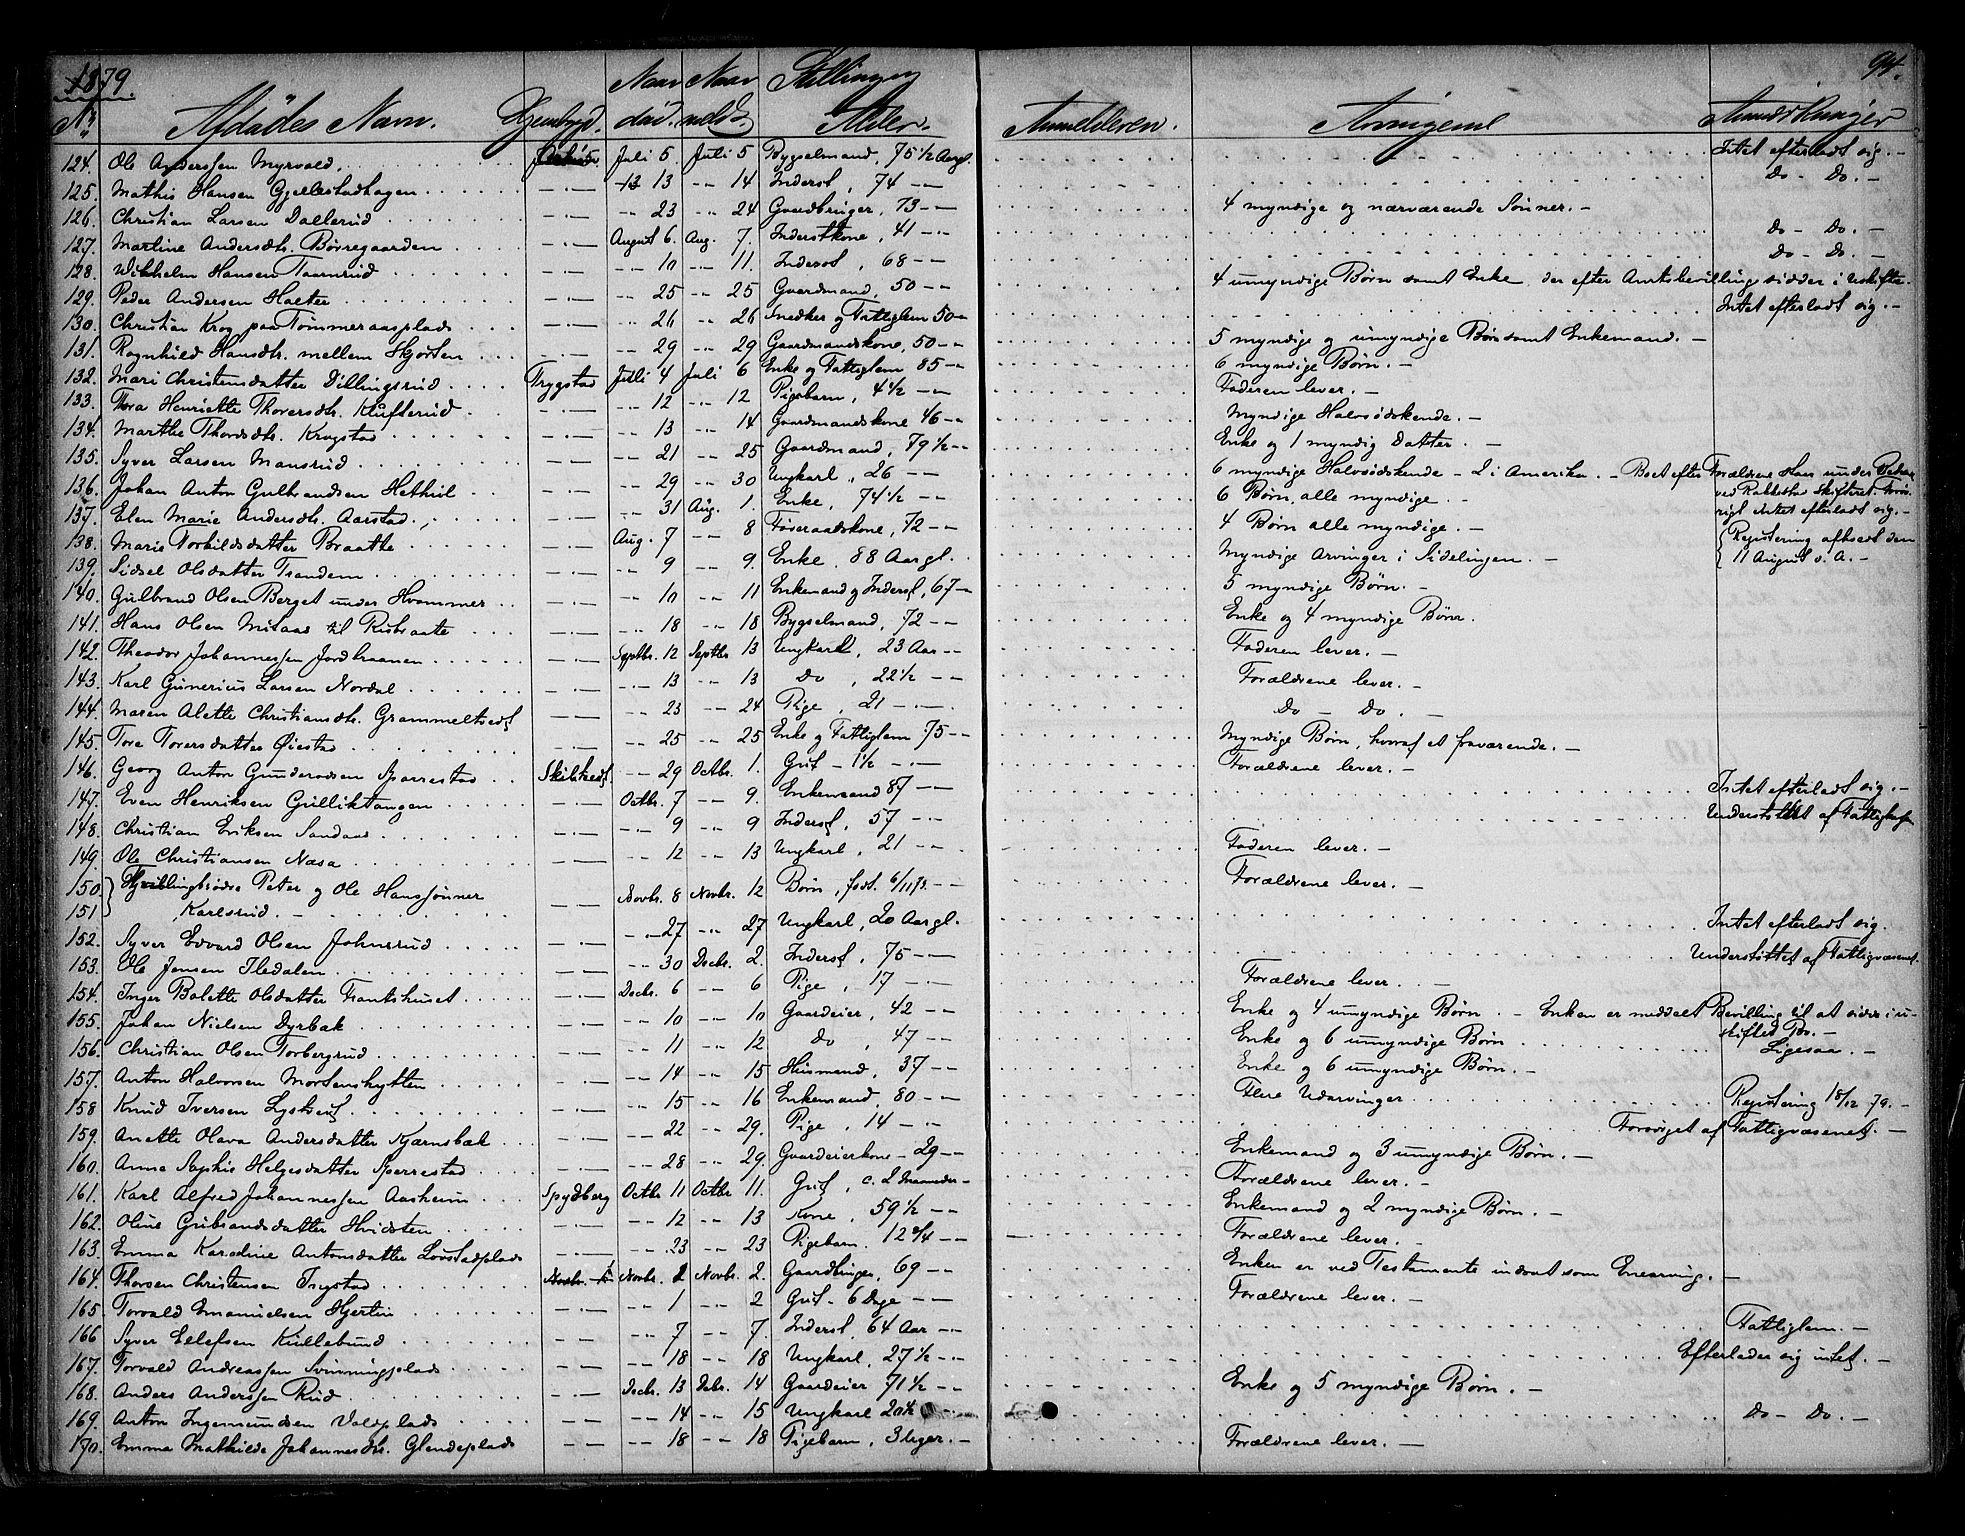 1879. 94.
No Afdødes Navn. Naar død. Naar meldt Stilling og Alder. Anmelderen. Arvingerne Anmærkninger
124. Ole Anderssen Myrvold. Juli 5. Juli 5 Bygselmand, 75 1/2 Aargl. Intet efterladt sig. -
125. Mathis Hansen Gjellestadhagen 13 -"- 14 Inderst, 74 -"- Do - Do. -
126. Christian Larsen Dallerud -"- 23 -"- 24 Gaardbruger, 73 -"- 4 myndige og nærværende Sønner. -
127. Martine Andersdtr. Børregaarden August 6. Aug. 7. Inderstkone, 41 -"- Do - Do. -
128. Wilhelm Hansen Taarnrud -"- 10 -"- 11. Inderst, 68 -"- Do - Do. -
129. Peder Andersen Haeter -"- 25 -"- 25 Gaardmand, 50 -"- 4 umyndige Børn samt Enke der efter Amtsbevilling sidder i Uskifte.
130. Christian Krog paa Tømmeraasplads -"- 26 -"- 26 Snedker og Fattiglem 50 -"- Intet efterladt sig. -
131. Ragnhild Hansdtr. mellem Skjøsten -"- 29 -"- 29 Gaardmandskone, 50 -"- 5 myndige og umyndige Børn samt Enkemand. -
132. Mari Christensdatter Dillingsrud Trygstad Juli 4 Juli 6 Enke og Fattiglem 85 -"- 6 myndige Børn. -
133. Thora Henriette Thoversdtr. Kufterud -"- 12 -"- 12 Pigebarn, 4 1/2 -"- Faderen lever. -
134. Marthe Thordsdtr. Krogstad -"- 13 -"- 14 Gaardmandskone 46 -"- Myndige Halvsødskende. -
135. Syver Larsen Mansrud -"- 21 -"- 25 Gaardmand, 79 1/2 -"- Enke og 1 myndig Datter. -
136. Johan Anton Gulbrandsen Hethuil -"- 29 -"- 30 Ungkarl, 26 -"- 6 myndige Halvsødskende - 2 i Amerika. - Boet efter Forældrene Han under
137. Elen Marie Andersdtr. Aarstad -"- 31 Aug. 1. Enke, 74 1/2 -"- 6 Børn, alle myndige. - ved Rakkestad Skifteret.
rigt intet efterladt sig. -
138. Marie Torkildsdatter Braathe Aug. 7 -"- 8 Føderaadskone, 72 -"- 4 Børn alle myndige. - Registering afholdt den
139. Sidsel Olsdatter Trandem -"- 9 -"- 9. Enke, 88 Aargl. Myndige Arvinger i Sidelinjen. - 11 August d. A. -
140. Gulbrand Olsen Berget under Hvammer -"- 10 -"- 11 Enkemand og Inderst, 67 -"- 5 myndige Børn. -
141. Hans Olsen Missaas til Risbraate -"- 18 -"- 18 Bygselmand, 72 -"- Enke og 4 myndige Børn.
142. Theodor Johannessen Jordhaanen Septbr. 12 Septbr 13 Ungkarl, 23 Aar -"- Faderen lever. -
143. Karl Gunerius Larsen Nordal -"- 13 -"- 13 Do, 22 1/2 -"- Forældrene lever. -
144. Maren Alette Christiansdtr. Grammeltvedt -"- 23 -"- 24 Pige, 21 -"- Do - Do. -
145. Tore Toversdatter Øiestad -"- 25 -"- 25 Enke og Fattiglem 75 -"- Myndige Børn, hvoraf et fraværende. -
146. Georg Anton Gundersen Sperrestad Skibtvedt. -"- 29 Octbr. 1. Gut - 1 1/2 -"- Forældrene lever. -
147. Even Henriksen Gulliktangen Octbr. 7 -"- 9. Enkemand 87 -"- Intet efterladt sig. -
148. Christian Eriksen Sandaas -"- 9 -"- 9 Inderst, 57 -"- Understøttet af
149. Ole Christiansen Næsa -"- 12 -"- 13 Ungkarl, 21 -"- Faderen lever. -
150. Tvillingbrødre Peter og Ole Hanssønner Novbr. 8 Novbr. 12 Børn, født 6/11 73 -"- Forældrene lever. -
151 Karlsrud. -
152. Syver Edvard Olsen Johnsrud -"- 27 -"- 27 Ungkarl, 20 Aargl. Intet efterladt sig.
153. Ole Jensen Iledalen -"- 30 Decbr. 2. Inderst, 75 -"- Understøttet af Fattigvæsenet.
154. Inger Bolette Olsdatter Frantshuset Decbr. 6 -"- 6 Pige, 17 -"- Forældrene lever. -
155. Johan Nielsen Dyrbak -"- 10 -"- 10 Gaardeier, 42 -"- Enke og 4 umyndige Børn. - Enken er meddelt Bevilling til at sidde i u-
skiftet Bo. -
156. Christian Olsen Torbergrud -"- 11 -"- 12 Do, 47 -"- Enke og 6 umyndige Børn Ligesaa. -
157. Anton Halvorsen Mortenshytten -"- 14 -"- 15 Husmand, 37 -"- Enke og 6 umyndige Børn. -
158 Knud Iversen Lystvet -"- 15 -"- 16 Enkemand, 80 -"- Flere Udarvinger Registering 18/12 79. -
159. Anette Olava Andersdatter Kjærnsbæk -"- 22 -"- 29. Pige, 14 -"- Forsørget af Fattigvæsenet. -
160. Anne Sophie Helgesdatter Sperrestad -"- 28 -"- 29. Gaardeierkone - 29 -"- Enkemand og 3 umyndige Børn. -
161. Karl Alfred Johannessen Aasheim Spydberg Octbr 11 Octbr 11. Gut, c. 2 Maaneder - Forældrene lever. -
162. Oline Gubrandsdatter Hvidsten -"- 12 -"- 13 Kone, 59 1/2 -"- Enkemand og 2 myndige Børn. -
163. Emma Karoline Antonsdatter Lovstadplads -"- 23 -"- 23 Pigebarn. 12 3/4 -"- Forældrene lever. -
164. Thorsen Christensen Trygstad Novbr. 2 Novbr. 2. Gaardbruger, 69 -"- Enken er ved Testamente indsat som Enearving. -
165. Torvald Emanuelsen Hjertin -"- 1 -"- 2 Gut - 6 Dage -"- Forældrene lever. -
166 Syver Ellefsen Kullebund -"- 7 -"- 7. Inderst, 64 Aar -"- Fattiglem. -
167. Torvald Andreassen Svinningplads -"- 18 -"- 18 Ungkarl, 27 1/2 -"- Efterlader sig intet. -
168. Anders Anderssen Rud Decbr. 13 Decbr. 14 Gaardeier 71 1/2 -"- Enke og 5 myndige Børn. -
169. Anton Ingemundsen Voldplads -"- 14 -"- 15 Ungkarl 20 1/2 Do - Do. -
170. Emma Mathilde Johannesdtr. Glendeplads -"- 18 -"- 18 Pigebarn, 3 Uger. - Forældrene lever. -